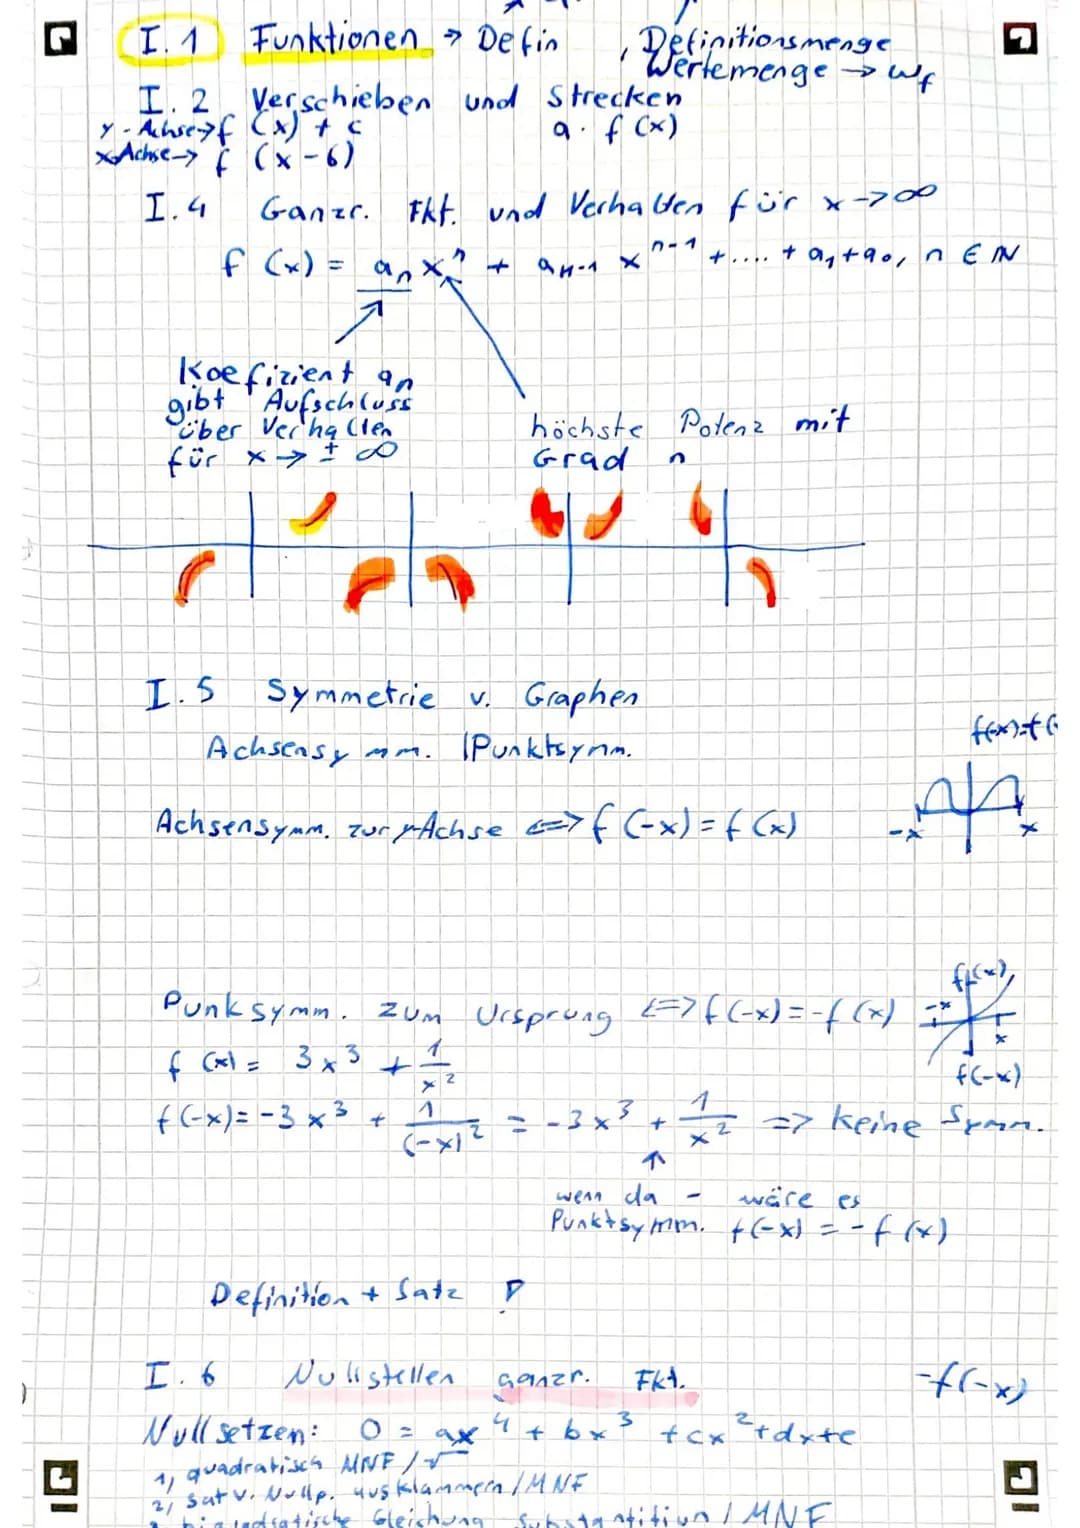 I.1 Funktionen → Defin , Definitionsmenge
Wertemenge → Wf
I.2 Verschieben und Strecken
y-Achse→f (x) + c a · f (x)
x-Achse→ f (x-b)
I.4 Ganzr. Fkt. und Verhalten für x→∞
f (x) = aₙxⁿ + aₙ₋₁ xⁿ⁻¹ + .... + a₁+a₀, n ∈ ℕ
Koefizient aₙ
gibt Aufschluss
über Verhalten
für x → ± ∞
höchste Potenz mit
Grad n
I.5 Symmetrie v. Graphen
Achsensymm. |Punktsymm.
f(-x)=f(
Achsensymm. zur y-Achse <=> f (-x) = f (x)
-x x
Punksymm. zum Ursprung <=> f(-x) = -f (x)
f(x)
-x
x
f(-x)
f (x) = 3x³ + 1/x²
f(-x) = -3x³ + 1/(-x)² = -3x³ + 1/x² => keine Symm.
↑
wenn da - wäre es
Punktsymm. f(-x) = -f (x)
Definition + Satz
I.6 Nullstellen ganzr. Fkt.
-f(-x)
Nullsetzen: 0 = ax⁴ + bx³ + cx² + dx+e
1, quadratisch MNF / √
2, Satz v. Nullp. ausklammern / MNF
Gleichung Substantitiun / MNF